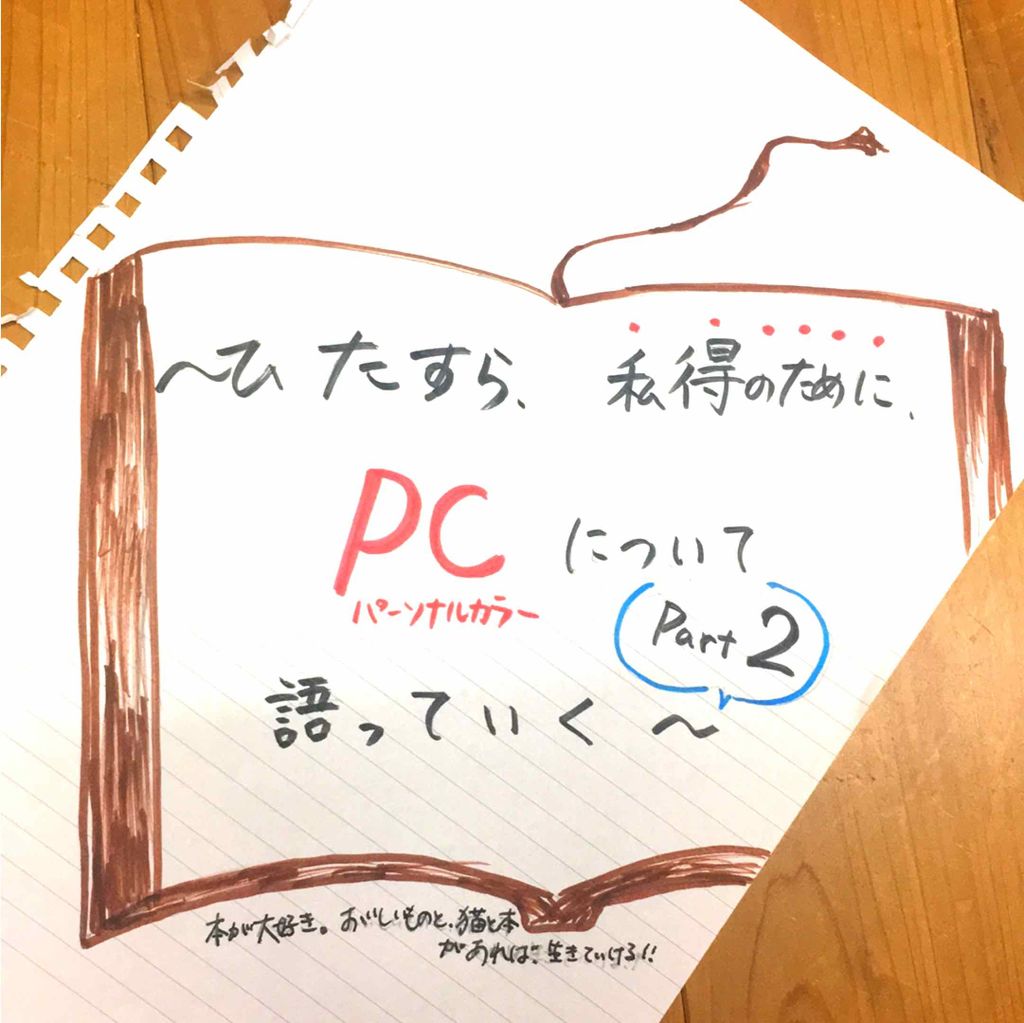 〜ひたすら、私得のために、
PCについて
パーソナルカラー
Part 2
語っていく〜
本が大好き。おいしいものと、猫と本
があれば、生きていける!!